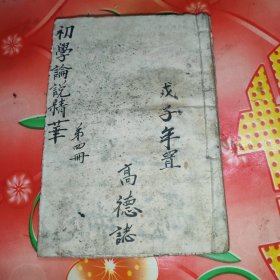 初學論説精華
第四冊
戊子年置
高德誌